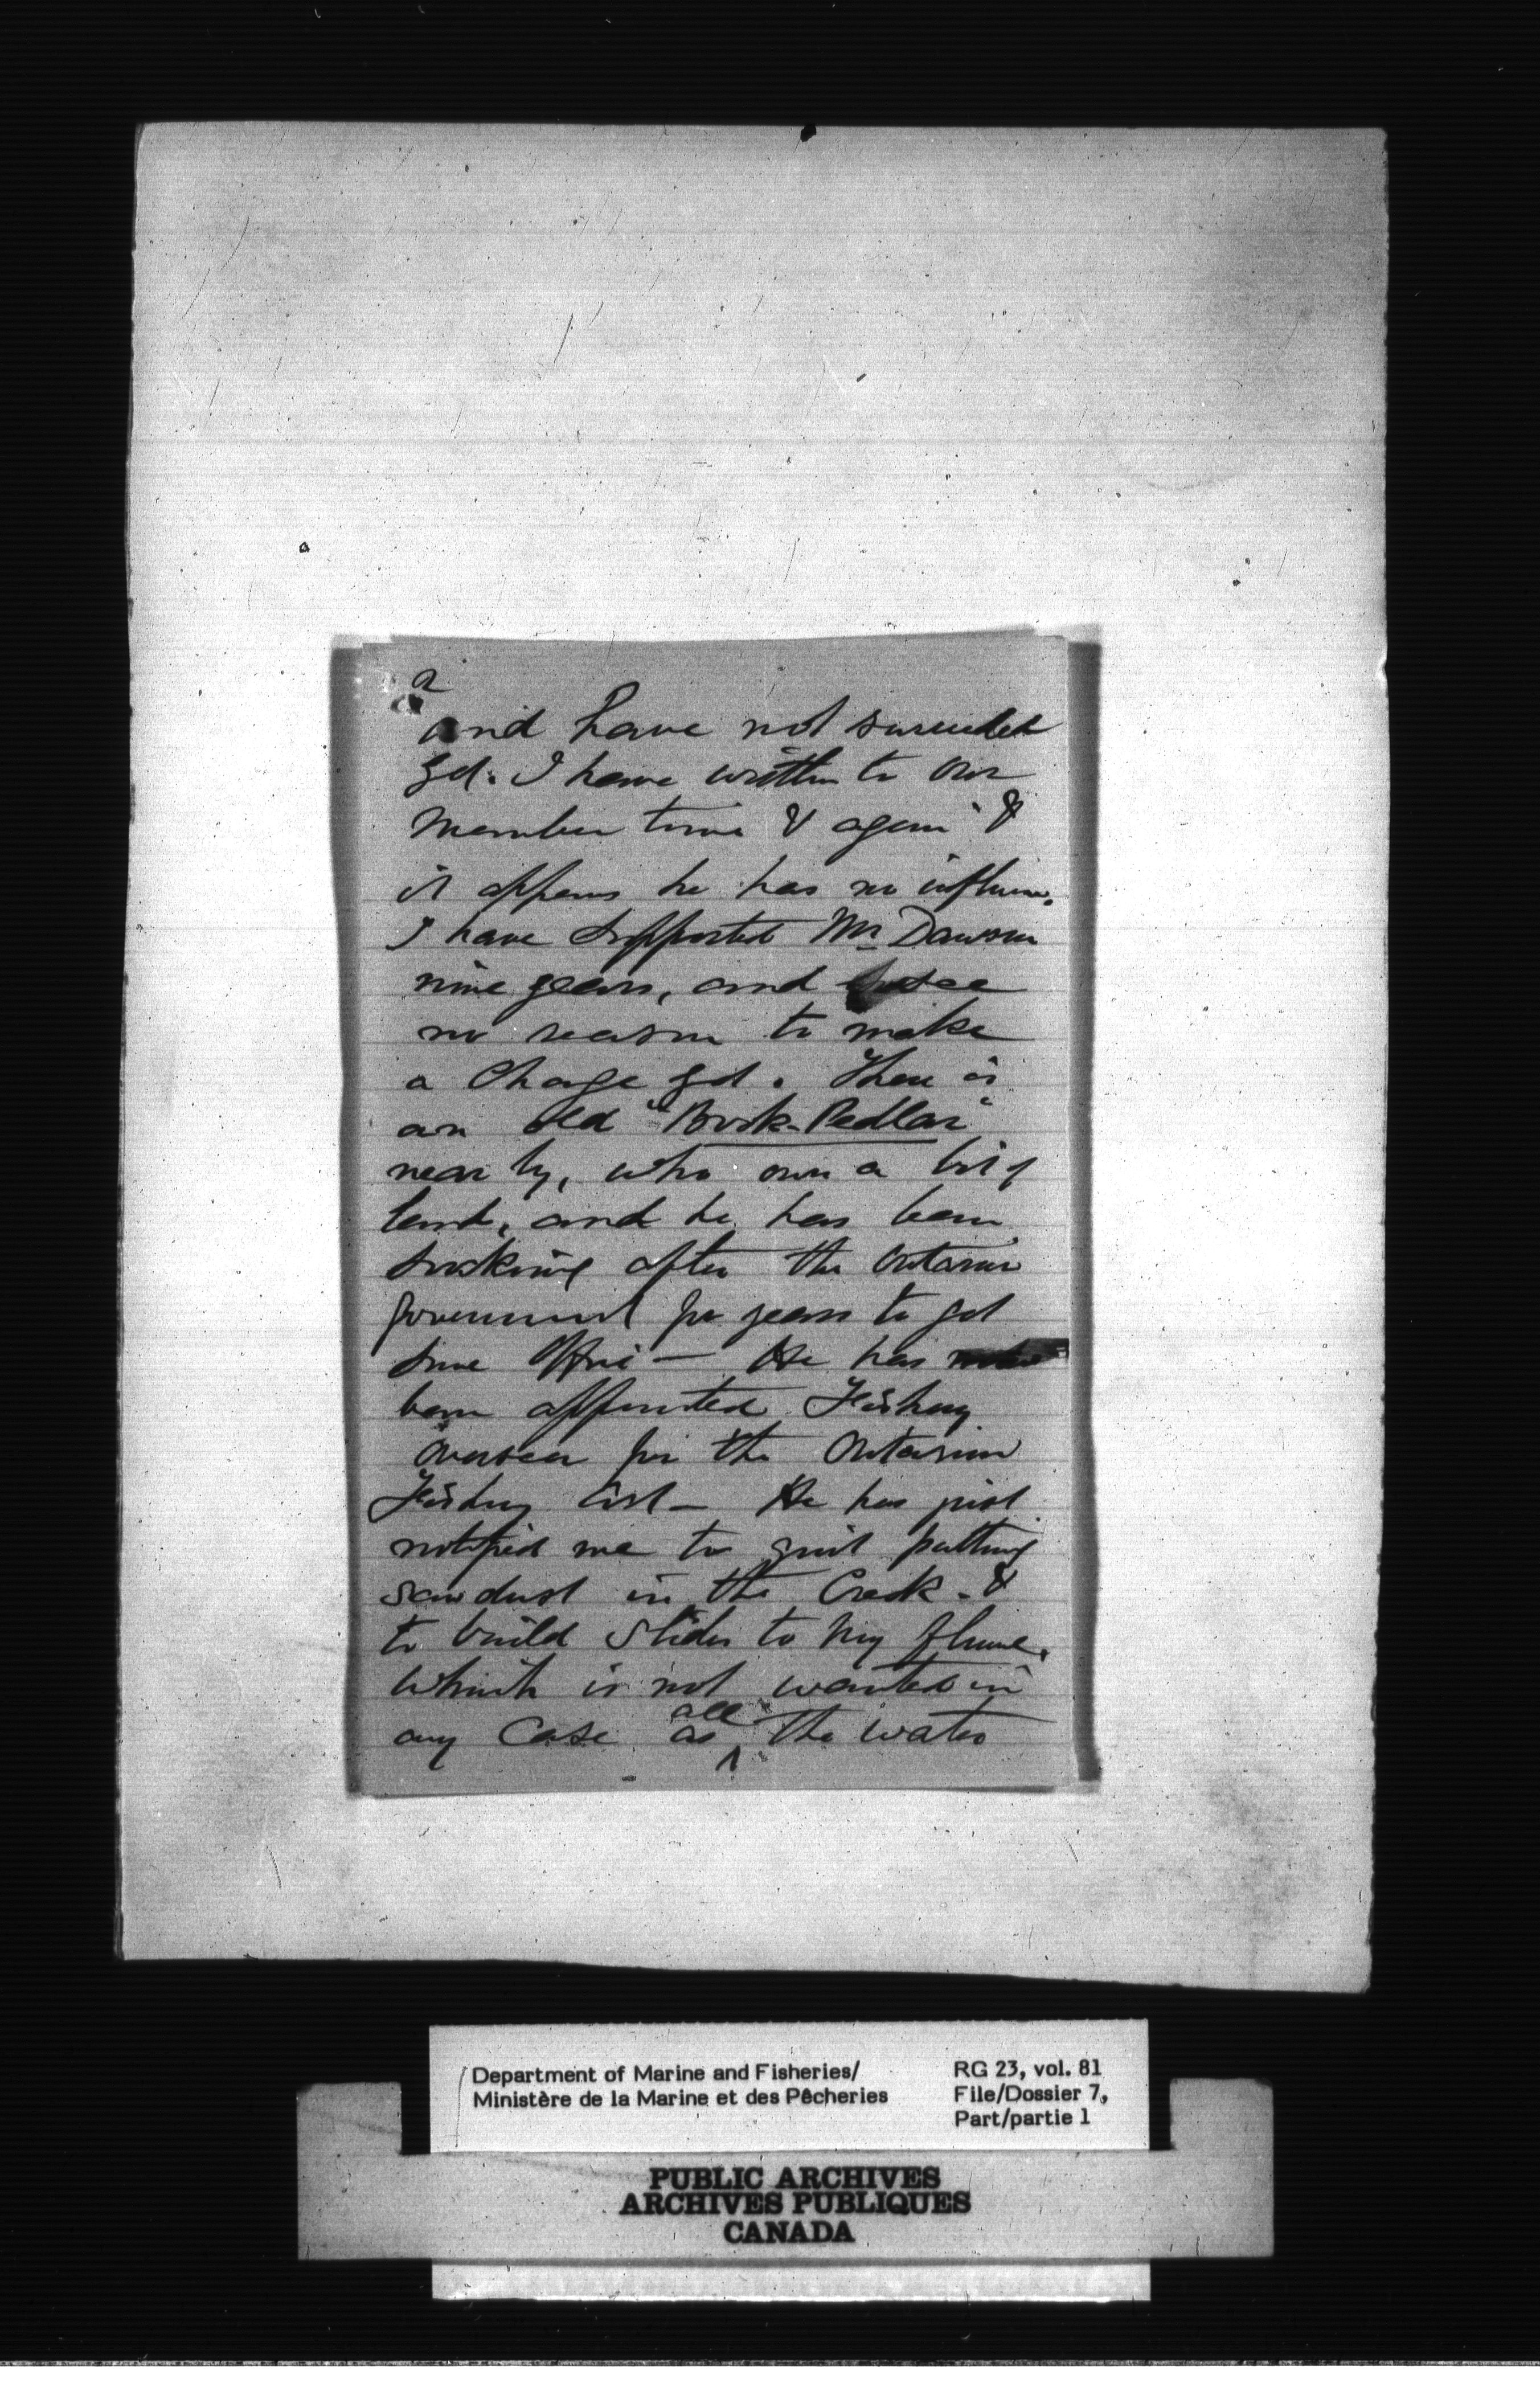 2
and have not succeeded
yet. I have written to our
Member time & again &
it appears he has no influence.
I have supported Mr Dawson
nine years, and see
no reason to make
a Change yet. There is
an old "Book-Pedlar"
near by, who own a bit of
land, and he has been
sucking after the Ontario
Government for years to get
some Office — He has
been appointed Fishery
Overseer for the Ontario
Fishery Act — He has just
notified me to quit putting
sawdust in the Creek - &
to build slides to my flume,
which is not wanted in
any Case as all the water
Department of Marine and Fisheries/
Ministère de la Marine et des Pêcheries
RG 23, vol. 81
File/Dossier 7,
Part/partie 1
PUBLIC ARCHIVES
ARCHIVES PUBLIQUES
CANADA